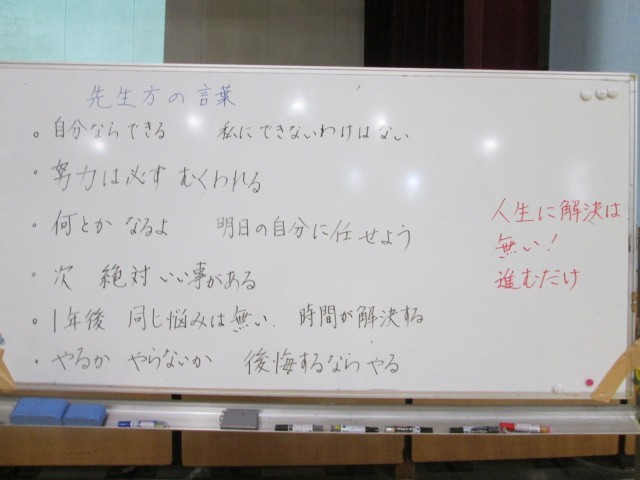 先生方の言葉
。自分ならできる 私にできないわけはない
・努力は必ず むくわれる
。何とか なるよ 明日の自分に任せよう
。次 絶対 いい事がある
。1年後 同じ悩みは無い. 時間が解決する
・やるか やらないか 後悔するならやる
人生に解決は
無い!
進むだけ